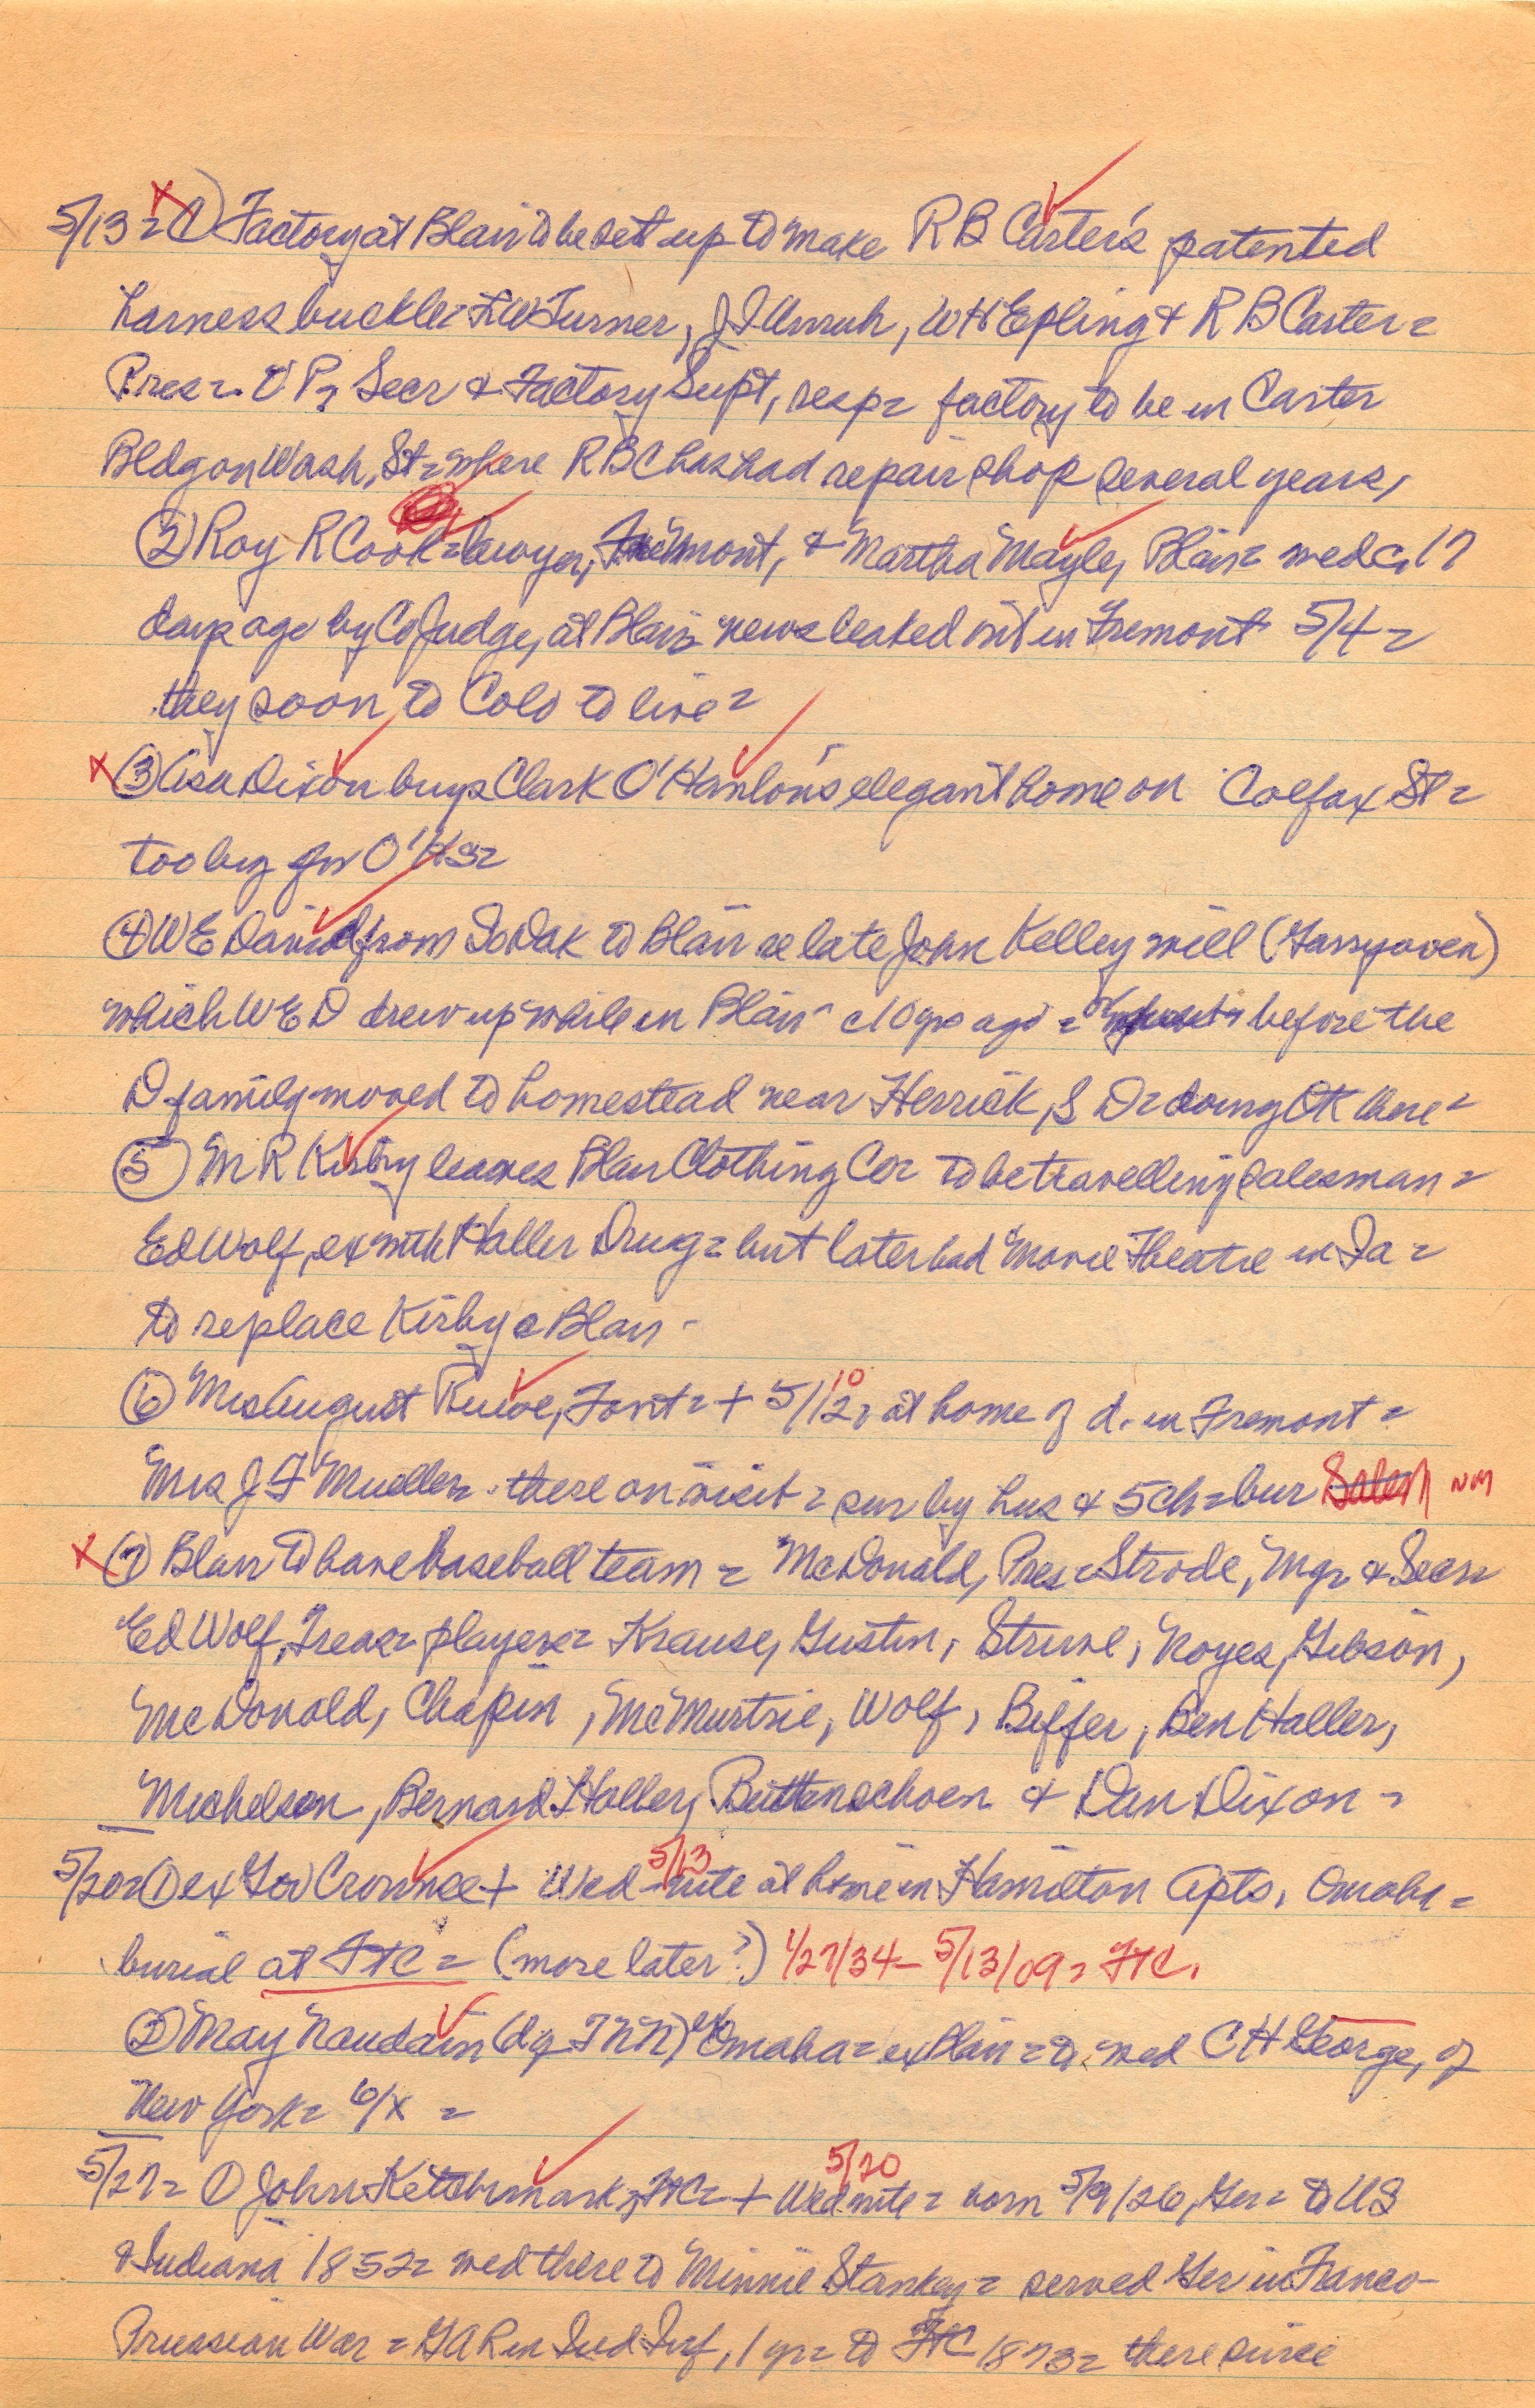 5/13 = (1) Factory at Blair to be set up to make R B Carter's patented
harness buckle = F W Turner, J I Unruh, W H Epling + R B Carter =
Pres = V P, Secr + Factory Supt, resp = factory to be in Carter
Bldg on Wash, St = where R B C has had repair shop several years,
(2) Roy R Cook = lawyer, Fremont, + Martha Mayle, Blair = wed c, 17
days ago by Co Judge, at Blair = news leaked out in Fremont 5/4 =
they soon to Colo to live =
x (3) Asa Dixon buys Clark O'Hanlon's elegant home on Colfax St =
too big for O'Hs =
(4) W E David from So Dak to Blair re late John Kelley will (Garryowen)
which W E D drew up while in Blair c 10 yrs ago = before the
D family moved to homestead near Herrick, S D = doing OK there =
(5) M R Kirby leaves Blair Clothing Co = to be travelling salesman =
Ed Wolf, ex with Haller Drug = but later had Movie Theatre in Ia =
to replace Kirby @ Blair -
(6) Mrs August Ruwe, Font = + 5/12, 10 at home of d. in Fremont =
Mrs J F Mueller = there on visit = sur by hus + 5 ch = bur Salem
x (7) Blair to have baseball team = McDonald, Pres = Strode, Mgr + Secr =
Ed Wolf, Treas = players = Krause, Gustin, Struve, Noyes, Gibson,
McDonald, Chapin, McMurtrie, Wolf, Biffer, Ben Haller,
Michelsen, Bernard Haller, Buttenschoen + Dan Dixon =
5/20 = (1) ex Gov Crounse + Wed 5/13 nite at home in Hamilton Apts, Omaha =
burial at FtC = (more later?) 1/27/34 - 5/13/09 = FtC.
(2) May Naudain (d of T N N) ex Omaha = ex Blair = to wed C H George, of
New York = 6/x =
5/27 = (1) John Ketchmark, FtC = + Wed nite 5/20 = born 5/9/26, Ger = to US
+ Indiana 1852 = wed there to Minnie Stankey = served Ger in Franco-
Prussian War = GAR in Ind Inf, 1 yr = to FtC 1873 = there since